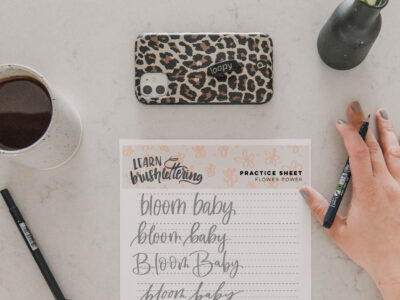 loopy
LEARN
brushlettering
PRACTICE SHEET
FLOWER POWER
bloom baby
bloom baby
Bloom Baby
bloom baby